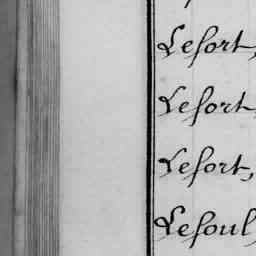 Lefort,
Lefort,
Lefort,
Lefoul,